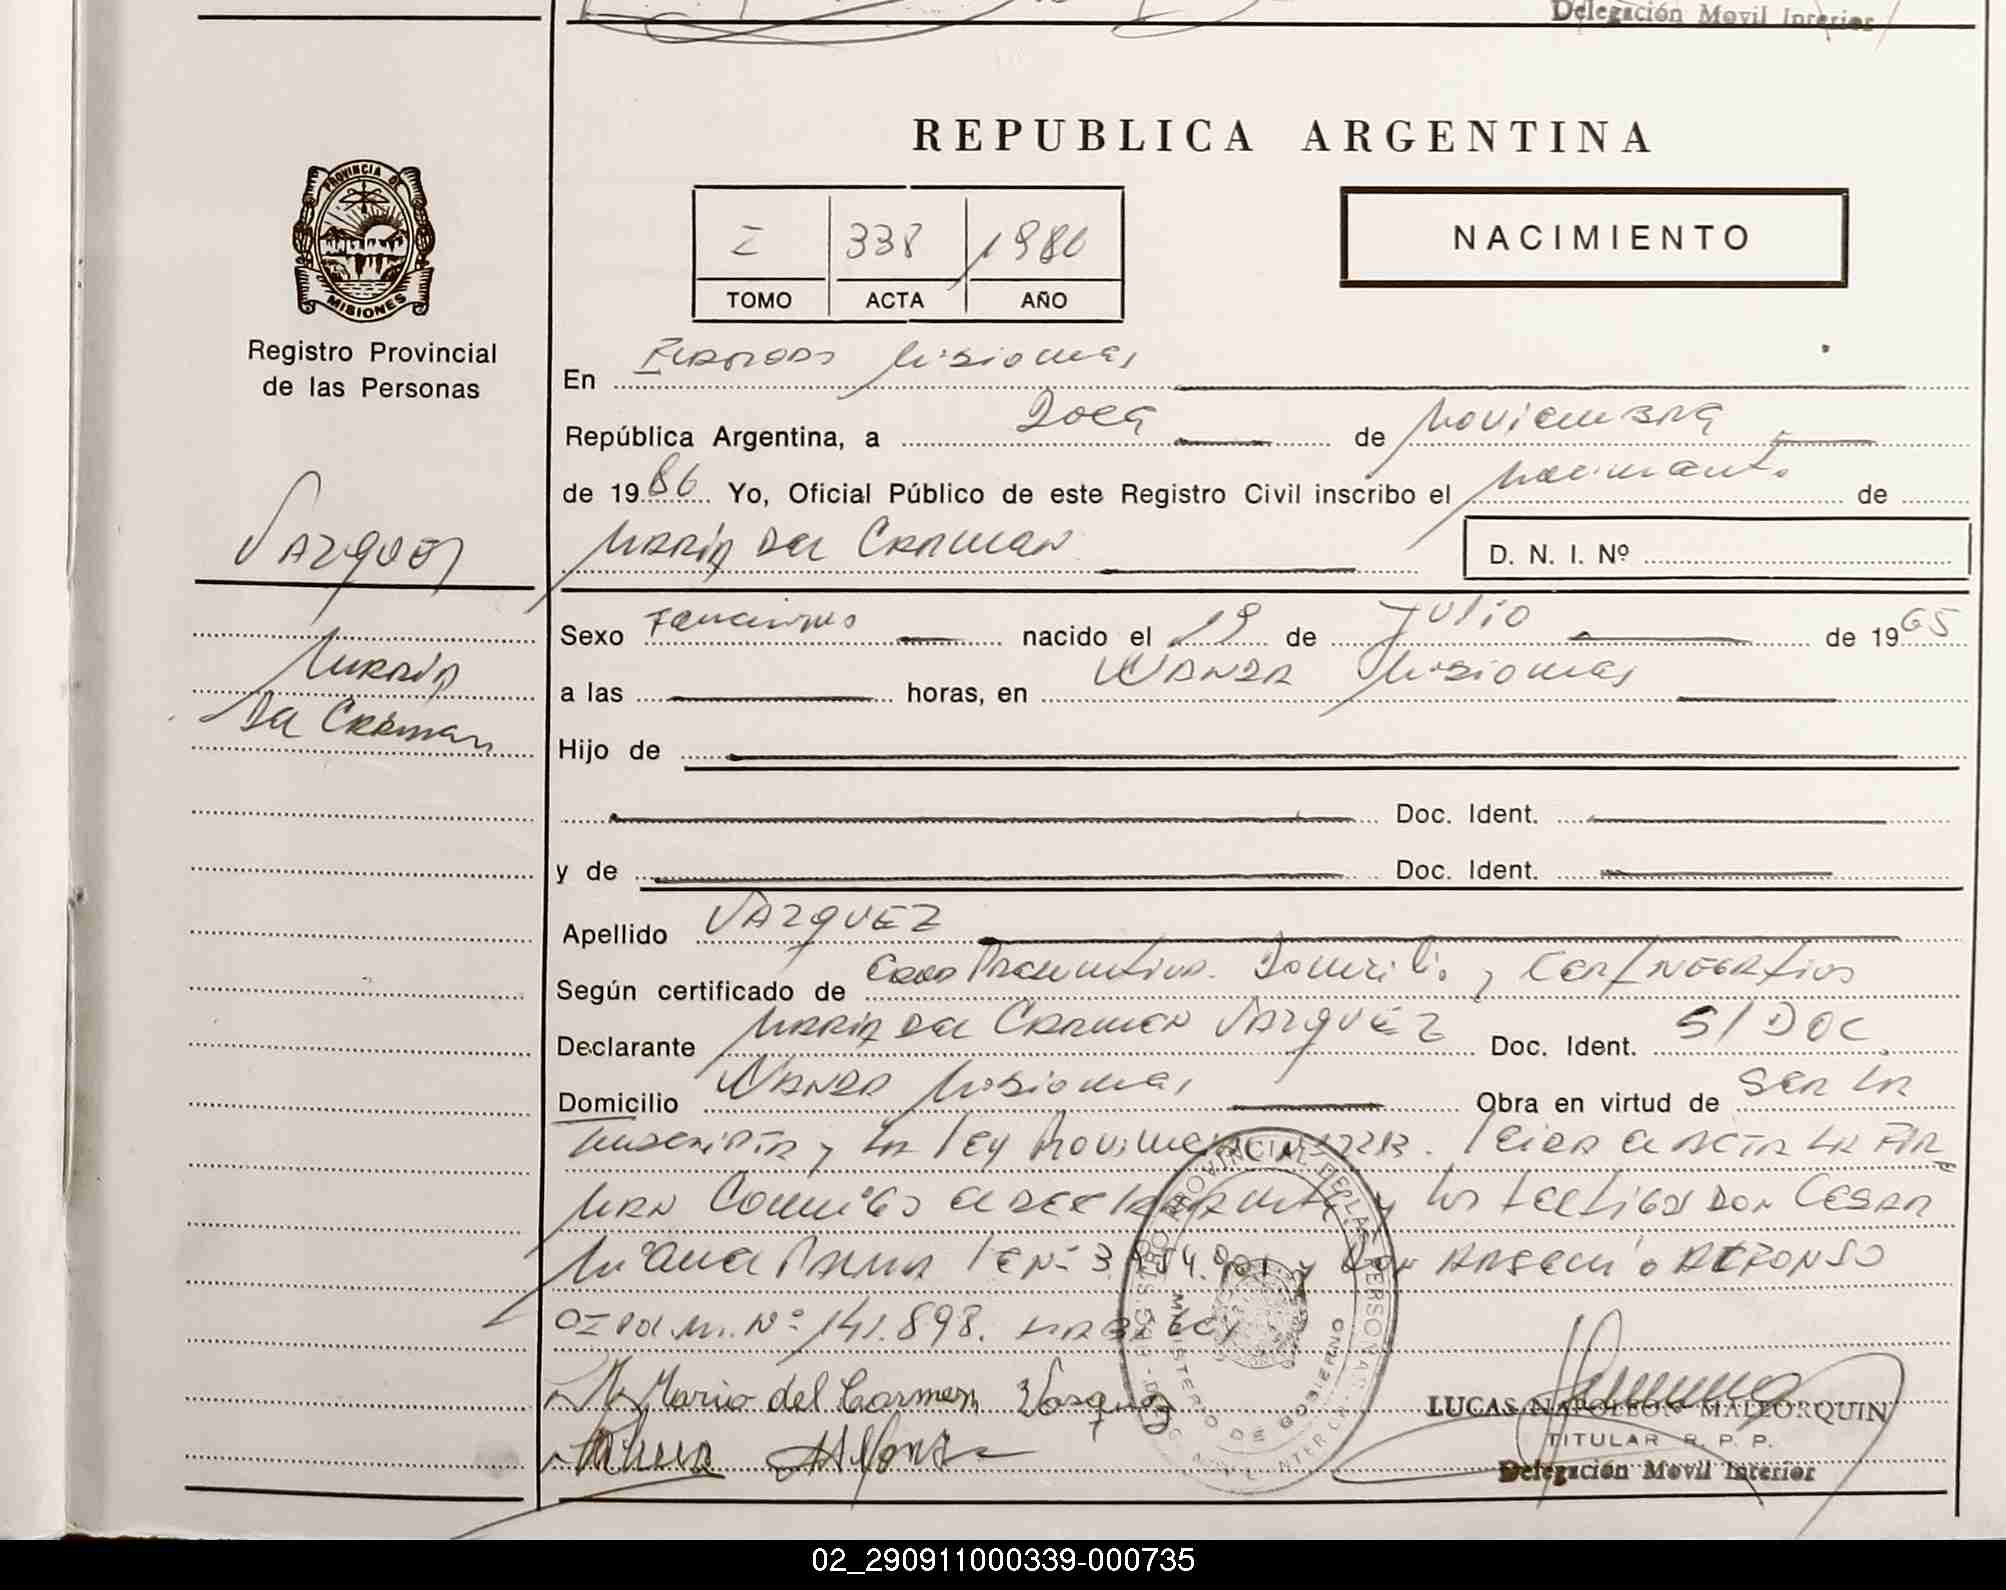 Delegación Movil Interior
REPUBLICA ARGENTINA
PROVINCIA DE
MISIONES
Registro Provincial
de las Personas
I 338 1986
TOMO ACTA AÑO
NACIMIENTO
En Misiones
República Argentina, a Doce de Noviembre
de 1986 Yo, Oficial Público de este Registro Civil inscribo el nacimiento de
María Del Carmen
D. N. I. Nº
Vazquez
María
Del Carmen
Sexo Femenino nacido el 19 de Julio de 1965
a las horas, en Wanda Misiones
Hijo de
Doc. Ident.
y de Doc. Ident.
Apellido VAZQUEZ
Según certificado de Edad Presuntiva. Domicilio y Cert Negativo
Declarante María Del Carmen Vazquez Doc. Ident. S/DOC
Domicilio Wanda Misiones Obra en virtud de Ser la
inscripta y la ley Provincial Leída el acta la fir
man conmigo el declarante y los testigos Don Cesar
Palma y Don Arsenio Alfonso
CI Pol. M. Nº 141.898.
Maria del Carmen Vasquez
Alfonso
REGISTRO PROVINCIAL DE LAS PERSONAS
MINISTERIO DE GOBIERNO
LUCAS NAPOLEON MALLORQUIN
TITULAR R. P. P.
Delegación Movil Interior
02_290911000339-000735